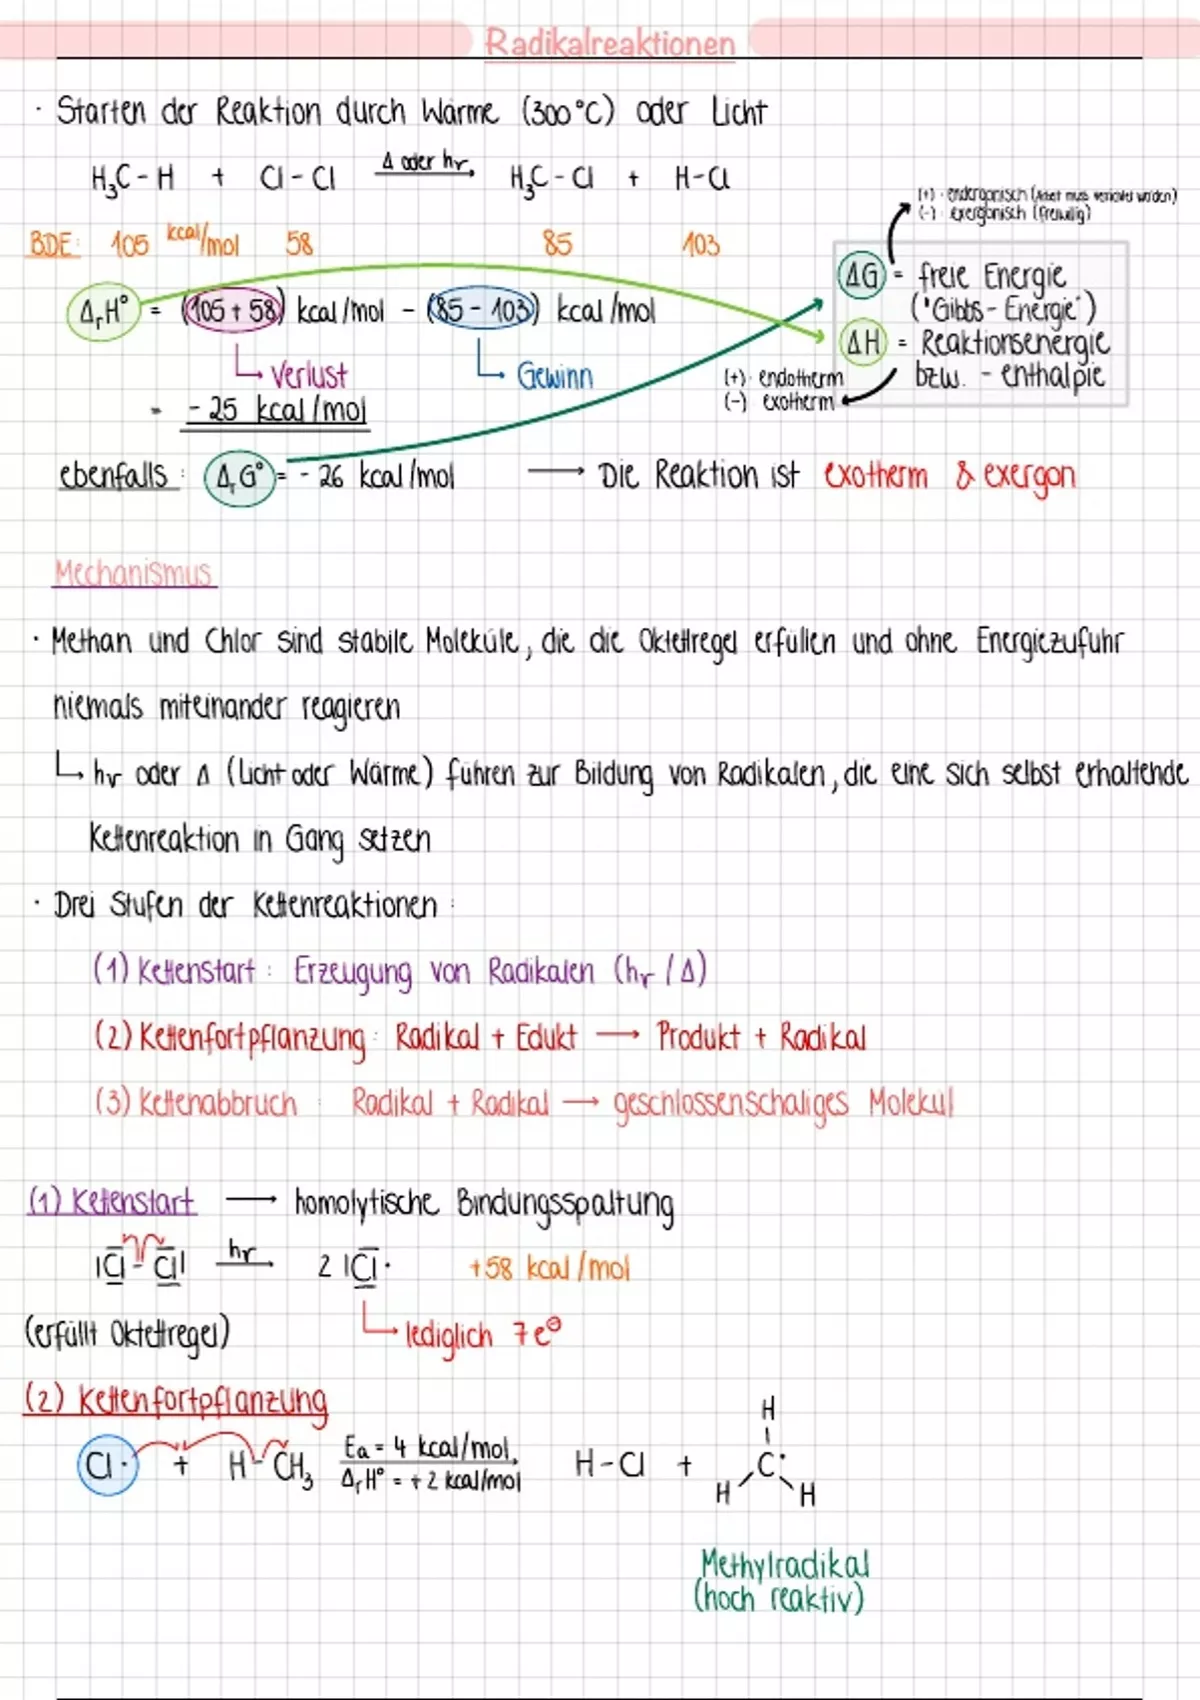 Radikalreaktionen
· Starten der Reaktion durch Wärme (300°C) oder Licht
H₃C - H + Cl - Cl Δ oder hν → H₃C - Cl + H - Cl
(+) · endergonisch (Arbeit muss verrichtet werden)
(-) · exergonisch (freiwillig)
BDE: 105 kcal/mol 58 85 103
ΔG = freie Energie
("Gibbs - Energie")
ΔᵣH° = (105 + 58) kcal/mol - (85 - 103) kcal/mol
ΔH = Reaktionsenergie
bzw. - enthalpie
↳ Verlust ↳ Gewinn
(+) · endotherm
(-) exotherm
= - 25 kcal/mol
ebenfalls: ΔᵣG° = - 26 kcal/mol → Die Reaktion ist exotherm & exergon
Mechanismus
· Methan und Chlor sind stabile Moleküle, die die Oktettregel erfüllen und ohne Energiezufuhr
niemals miteinander reagieren
↳ hν oder Δ (Licht oder Wärme) führen zur Bildung von Radikalen, die eine sich selbst erhaltende
Kettenreaktion in Gang setzen
· Drei Stufen der Kettenreaktionen:
(1) Kettenstart: Erzeugung von Radikalen (hν / Δ)
(2) Kettenfortpflanzung: Radikal + Edukt → Produkt + Radikal
(3) Kettenabbruch: Radikal + Radikal → geschlossenschaliges Molekül
(1) Kettenstart → homolytische Bindungsspaltung
|Cl - Cl| hν → 2 |Cl· +58 kcal/mol
(erfüllt Oktettregel) ↳ lediglich 7e⊖
(2) Kettenfortpflanzung
Cl· + H - CH₃ Eₐ = 4 kcal/mol, ΔᵣH° = + 2 kcal/mol → H - Cl + H C· H H
Methylradikal
(hoch reaktiv)